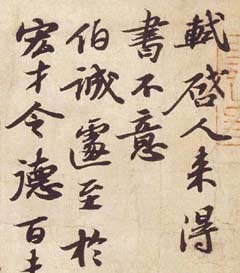 軾啓人来得
書不意
伯誠遽至於
宏才令德百未